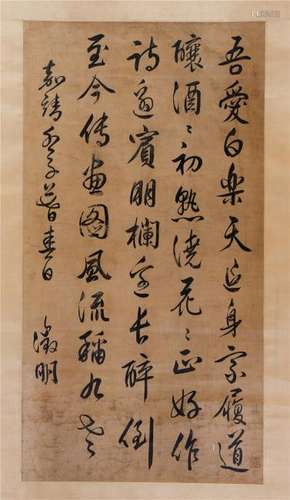 吾愛白樂天退身家履道
釀酒〻初熟澆花〻正好作
詩邀賓朋欄邊長醉倒
至今傳畫圖風流稱九老
嘉靖子春日
徵明